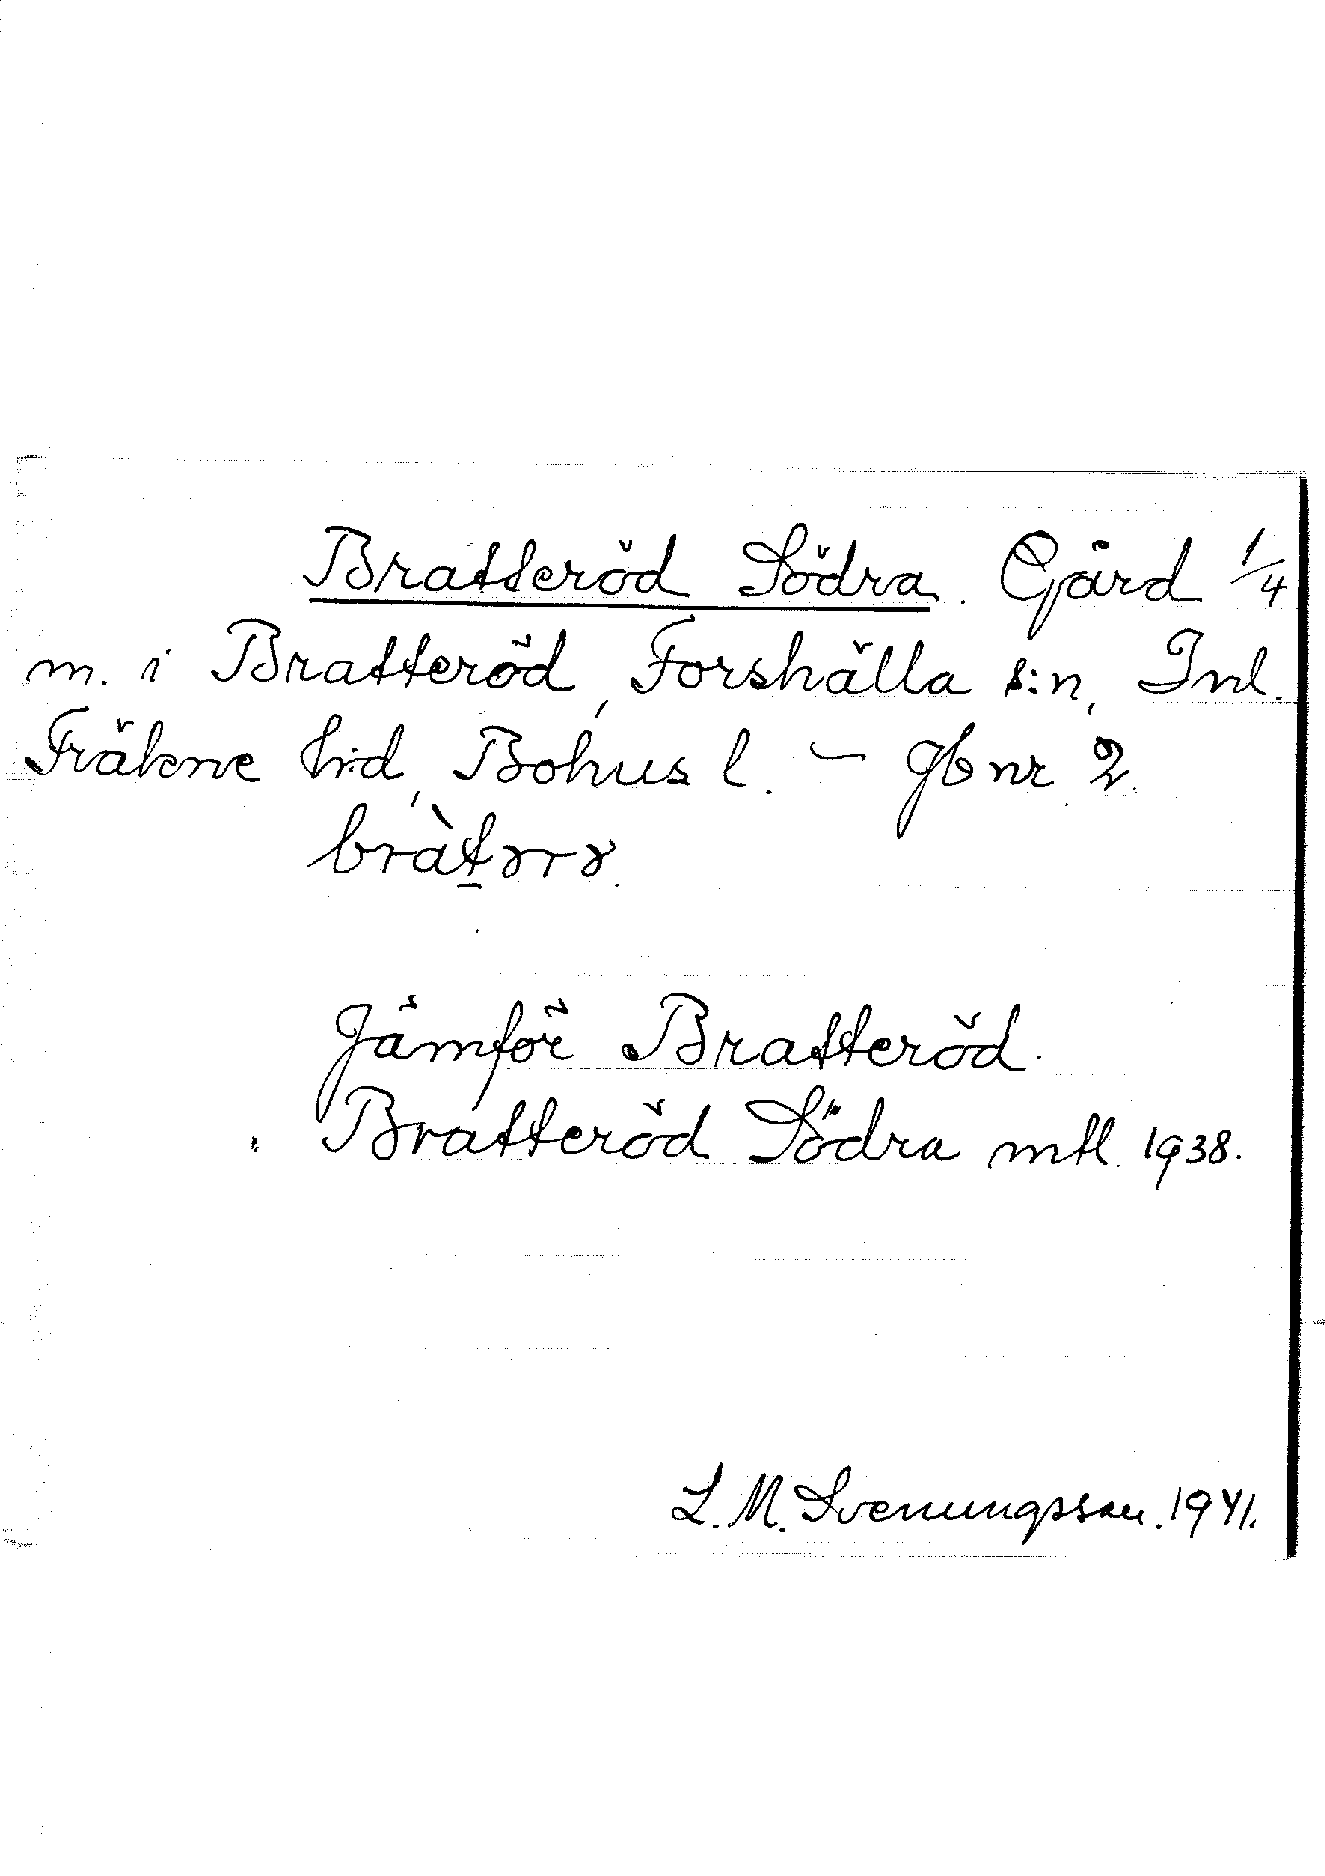 Bratteröd Södra. Gård 1/4
m. i Bratteröd, Forshälla s:n, Inl.
Fräkne h:d, Bohus l. – Gb nr 2.
Jämför Bratteröd.
Bratteröd Södra mtl. 1938.
L. M. Svenungsson. 1941.